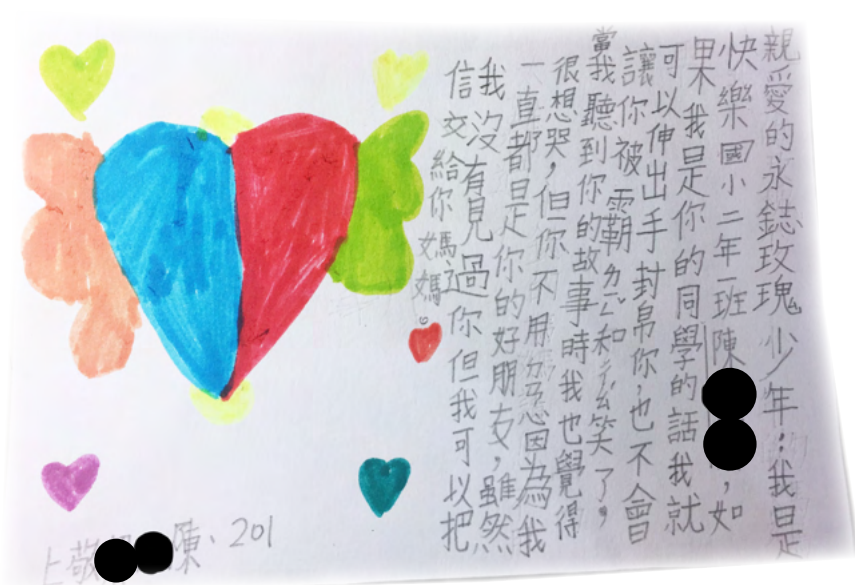 親愛的永鋕玫瑰少年：我是
快樂國小二年一班陳，如
果我是你的同學的話我就
可以伸出手封帛你，也不會
讓你被霸ㄌㄧㄥˊ和笑了，
當我聽到你的故事時我也覺得
很想哭，但你不用忍因為我
一直都是你的好朋友，雖然
我沒有見過你但我可以把
信交給你媽媽。
201、陳敬上